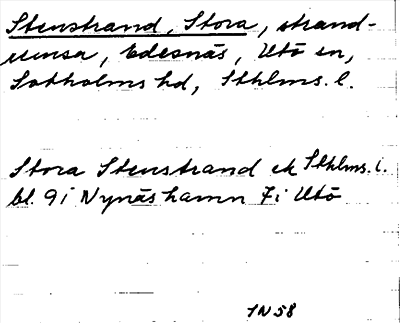 Stenstrand, Stora, strand-
remsa, Edesnäs, Utö sn,
Sotholms hd, Sthlms. l.
Stora Stenstrand ek Sthlms. l.
bl. 9 i Nynäshamn 7 i Utö
IN 58